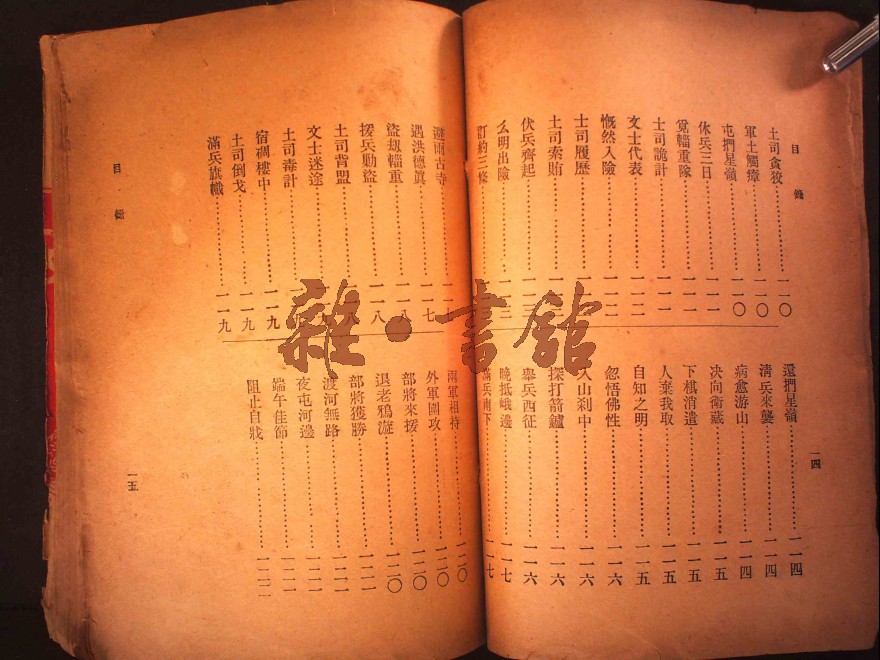 目錄
土司貪狡……一一〇
軍士觸瘴……一一〇
屯捫星嶺……一一〇
休兵三日……一一一
覓輜重隊……一一一
土司詭計……一一一
文士代表……一一二
慨然入險……一一二
土司履歷……
土司索賄……
伏兵齊起……一一三
么明出險……
訂約三條……
還捫星嶺……一一四
清兵來襲……一一四
病愈游山……一一四
決向衛藏……一一五
下棋消遣……一一五
人棄我取……一一五
自知之明……一一五
忽悟佛性……一一六
入山剎中……一一六
探打箭鑪……一一六
舉兵西征……一一六
晚抵峨邊……一一七
滿兵南下……一一七
一四
避雨古寺……
遇洪德眞……一一七
盜刼輜重……一一八
援兵勦盜……一一八
土司背盟……
文士迷途……
土司毒計……
宿碉樓中……一一九
土司倒戈……一一九
滿兵旗幟……一一九
兩軍相持……一二〇
外軍圍攻……一二〇
部將來援……一二〇
退老鴉漩……一二〇
部將獲勝……一二一
渡河無路……一二一
夜屯河邊……一二一
端午佳節……一二一
阻止自戕……一二二
目錄
一五
雜·書館